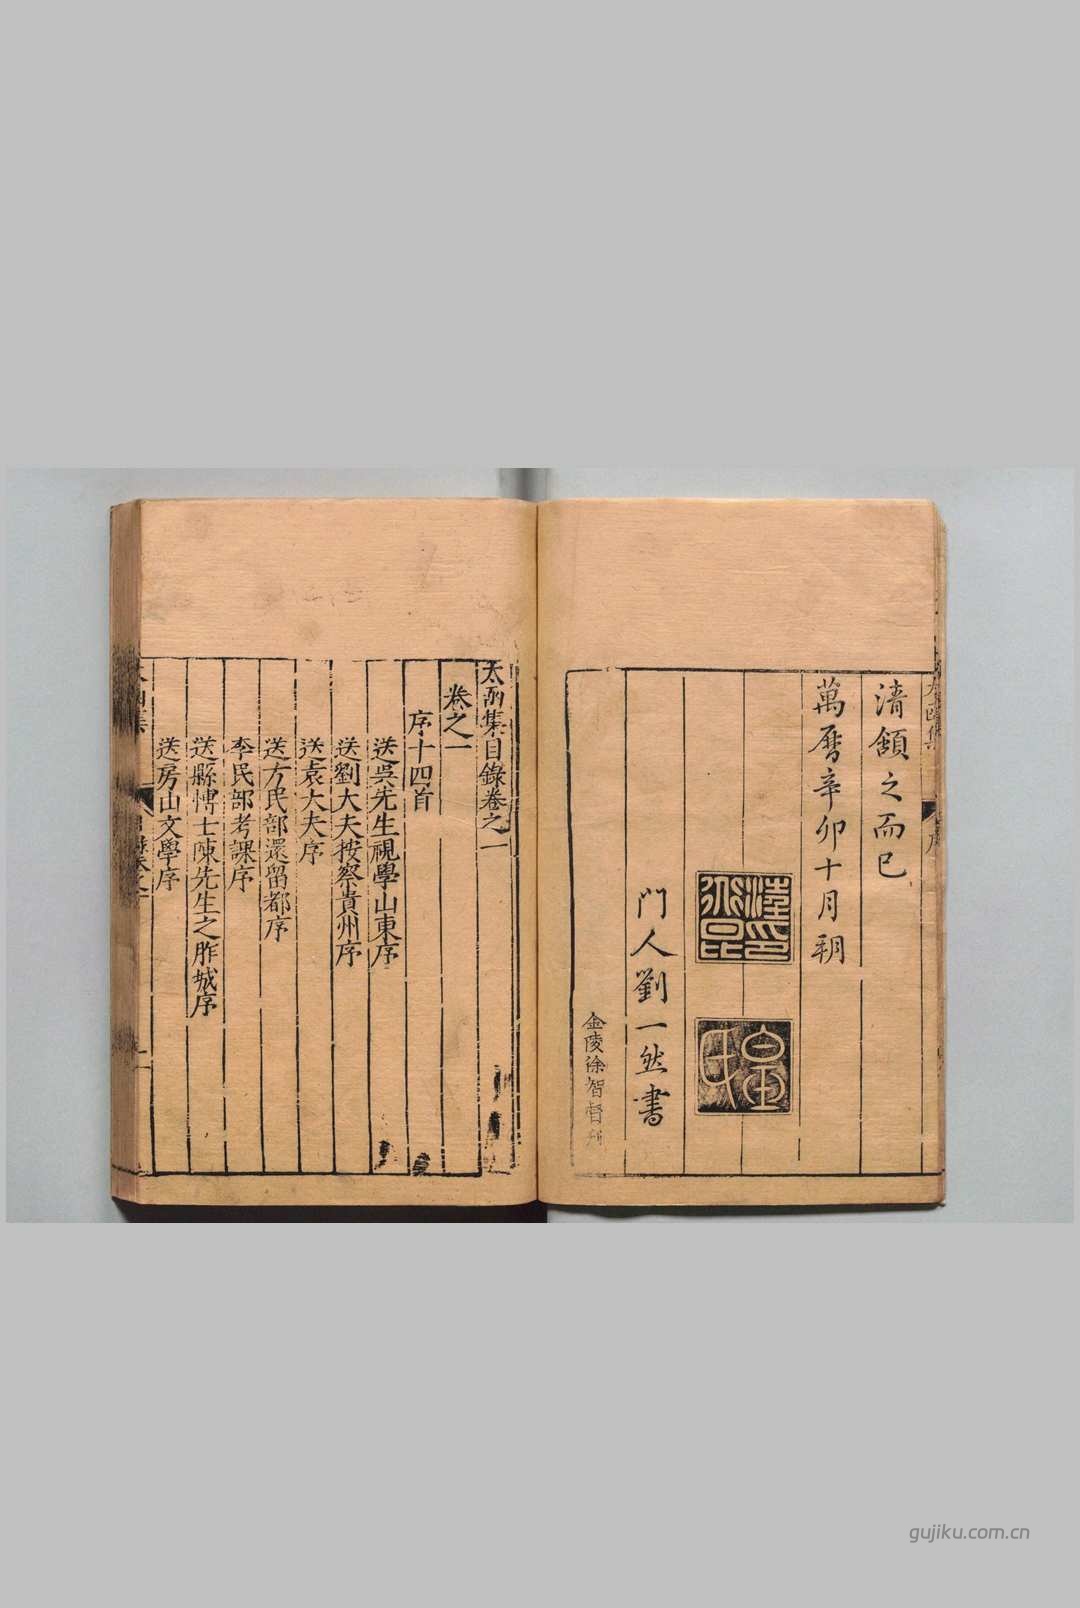 清頟之而已
萬曆辛卯十月朔
汪印
道昆
門人劉一然書
金陵徐智督刊
太函集目錄卷之一
卷之一
序十四首
送吳先生視學山東序
送劉大夫按察貴州序
送袁大夫序
送方民部還留都序
李民部考課序
送縣博士陳先生之胙城序
送房山文學序
gujiku.com.cn